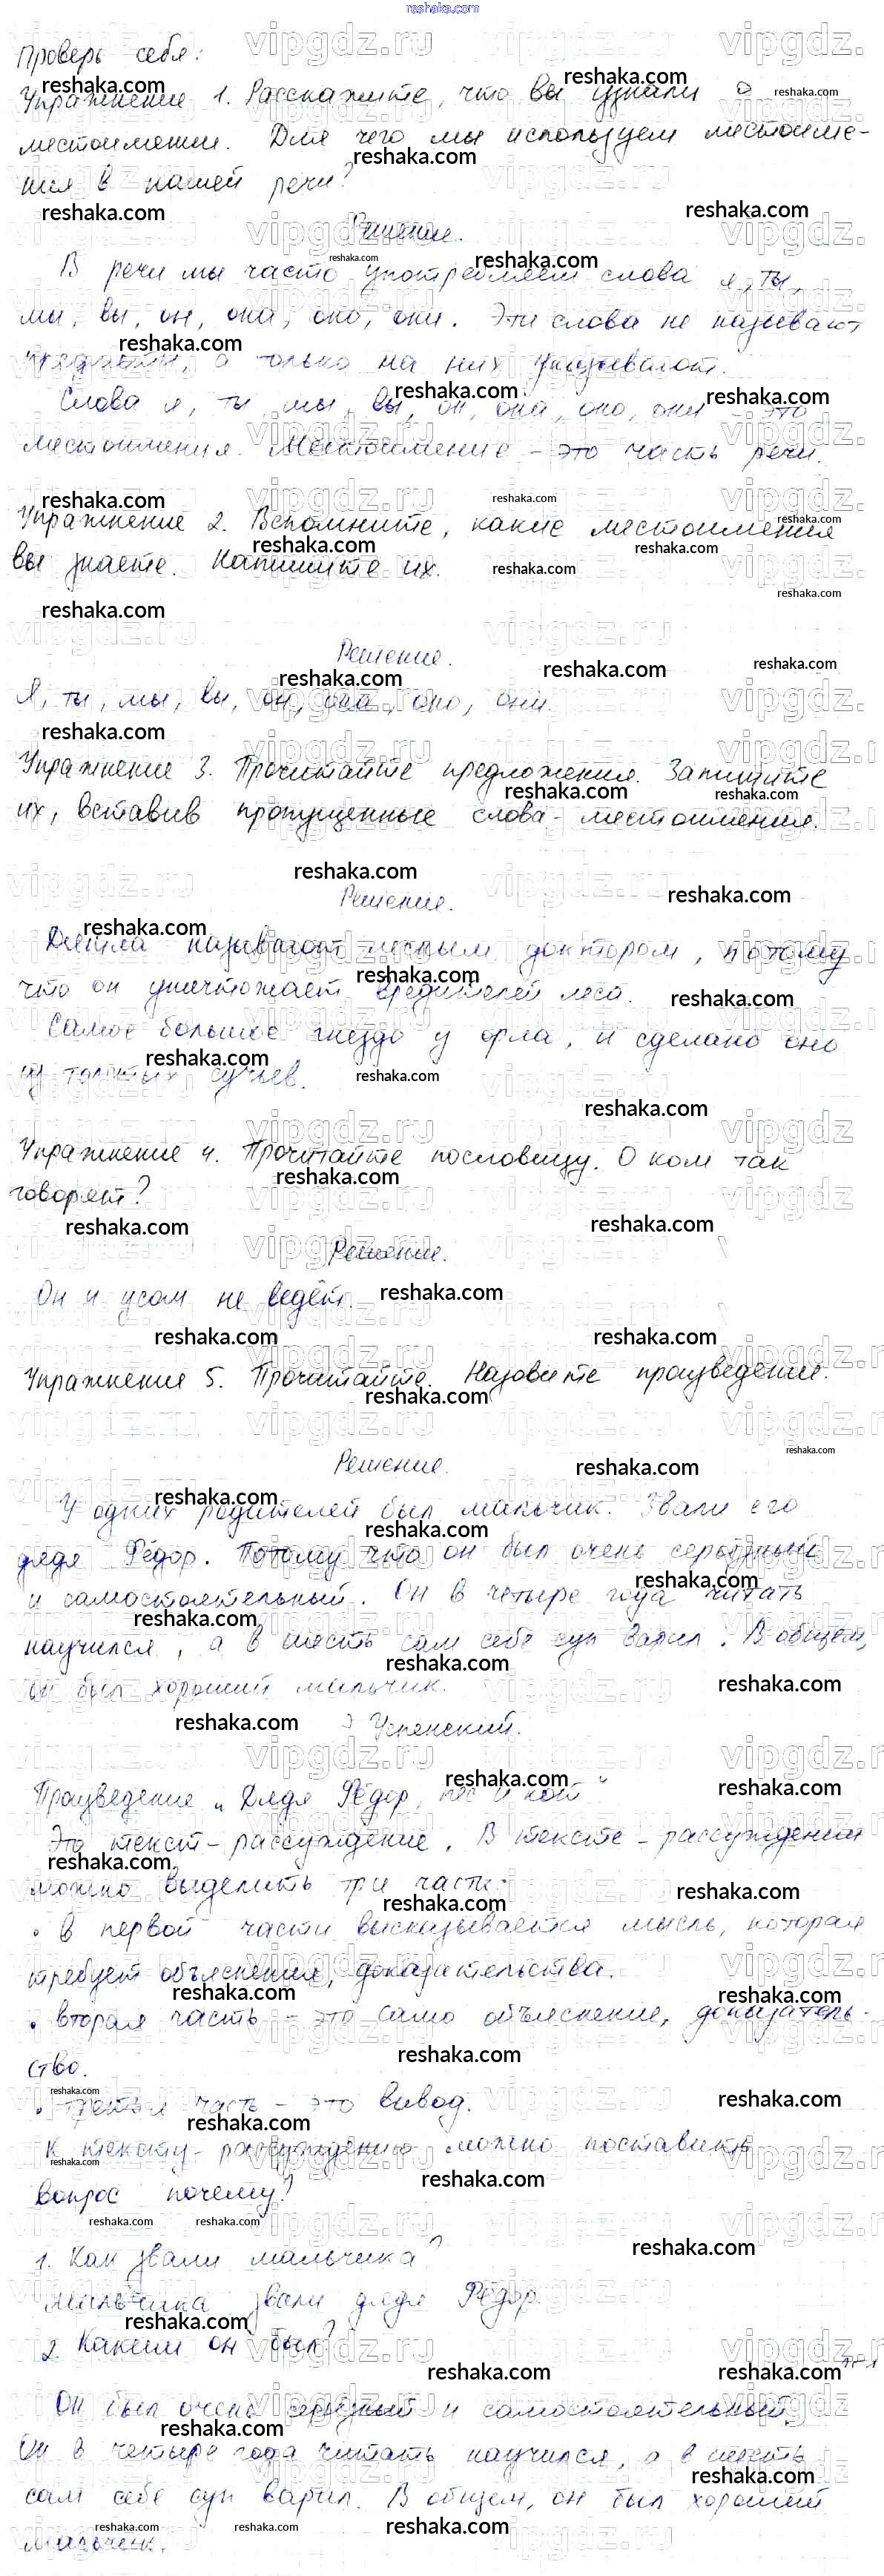 reshaka.com
Проверь себя:
Упражнение 1. Расскажите, что вы узнали о
местоимении. Для чего мы используем местоиме-
ния в нашей речи?
Решение.
В речи мы часто употребляем слова я, ты,
мы, вы, он, она, оно, они. Эти слова не называют
предметы, а только на них указывают.
Слова я, ты, мы, вы, он, она, оно, они - это
местоимения. Местоимение - это часть речи.
Упражнение 2. Вспомните, какие местоимения
вы знаете. Напишите их.
Решение.
Я, ты, мы, вы, он, она, оно, они.
Упражнение 3. Прочитайте предложения. Запишите
их, вставив пропущенные слова - местоимения.
Решение.
Дятла называют лесным доктором, потому
что он уничтожает вредителей леса.
Самое большое гнездо у орла, и сделано оно
из толстых сучьев.
Упражнение 4. Прочитайте пословицу. О ком так
говорят?
Решение.
Он и усом не ведёт.
Упражнение 5. Прочитайте. Назовите произведение.
Решение.
У одних родителей был мальчик. Звали его
дядя Фёдор. Потому что он был очень серьёзный
и самостоятельный. Он в четыре года читать
научился, а в шесть сам себе суп варил. В общем,
он был хороший мальчик.
Э Успенский.
Произведение „Дядя Фёдор, пёс и кот"
Это текст-рассуждение. В тексте-рассуждении
можно выделить три части:
• в первой части высказывается мысль, которая
требует объяснения, доказательства.
• вторая часть - это само объяснение, доказатель-
ство.
• третья часть - это вывод.
К тексту-рассуждению можно поставить
вопрос почему?
1. Как звали мальчика?
Мальчика звали дядя Фёдор.
2. Каким он был?
Он был очень серьёзный и самостоятельный.
Он в четыре года читать научился, а в шесть
сам себе суп варил. В общем, он был хороший
мальчик.